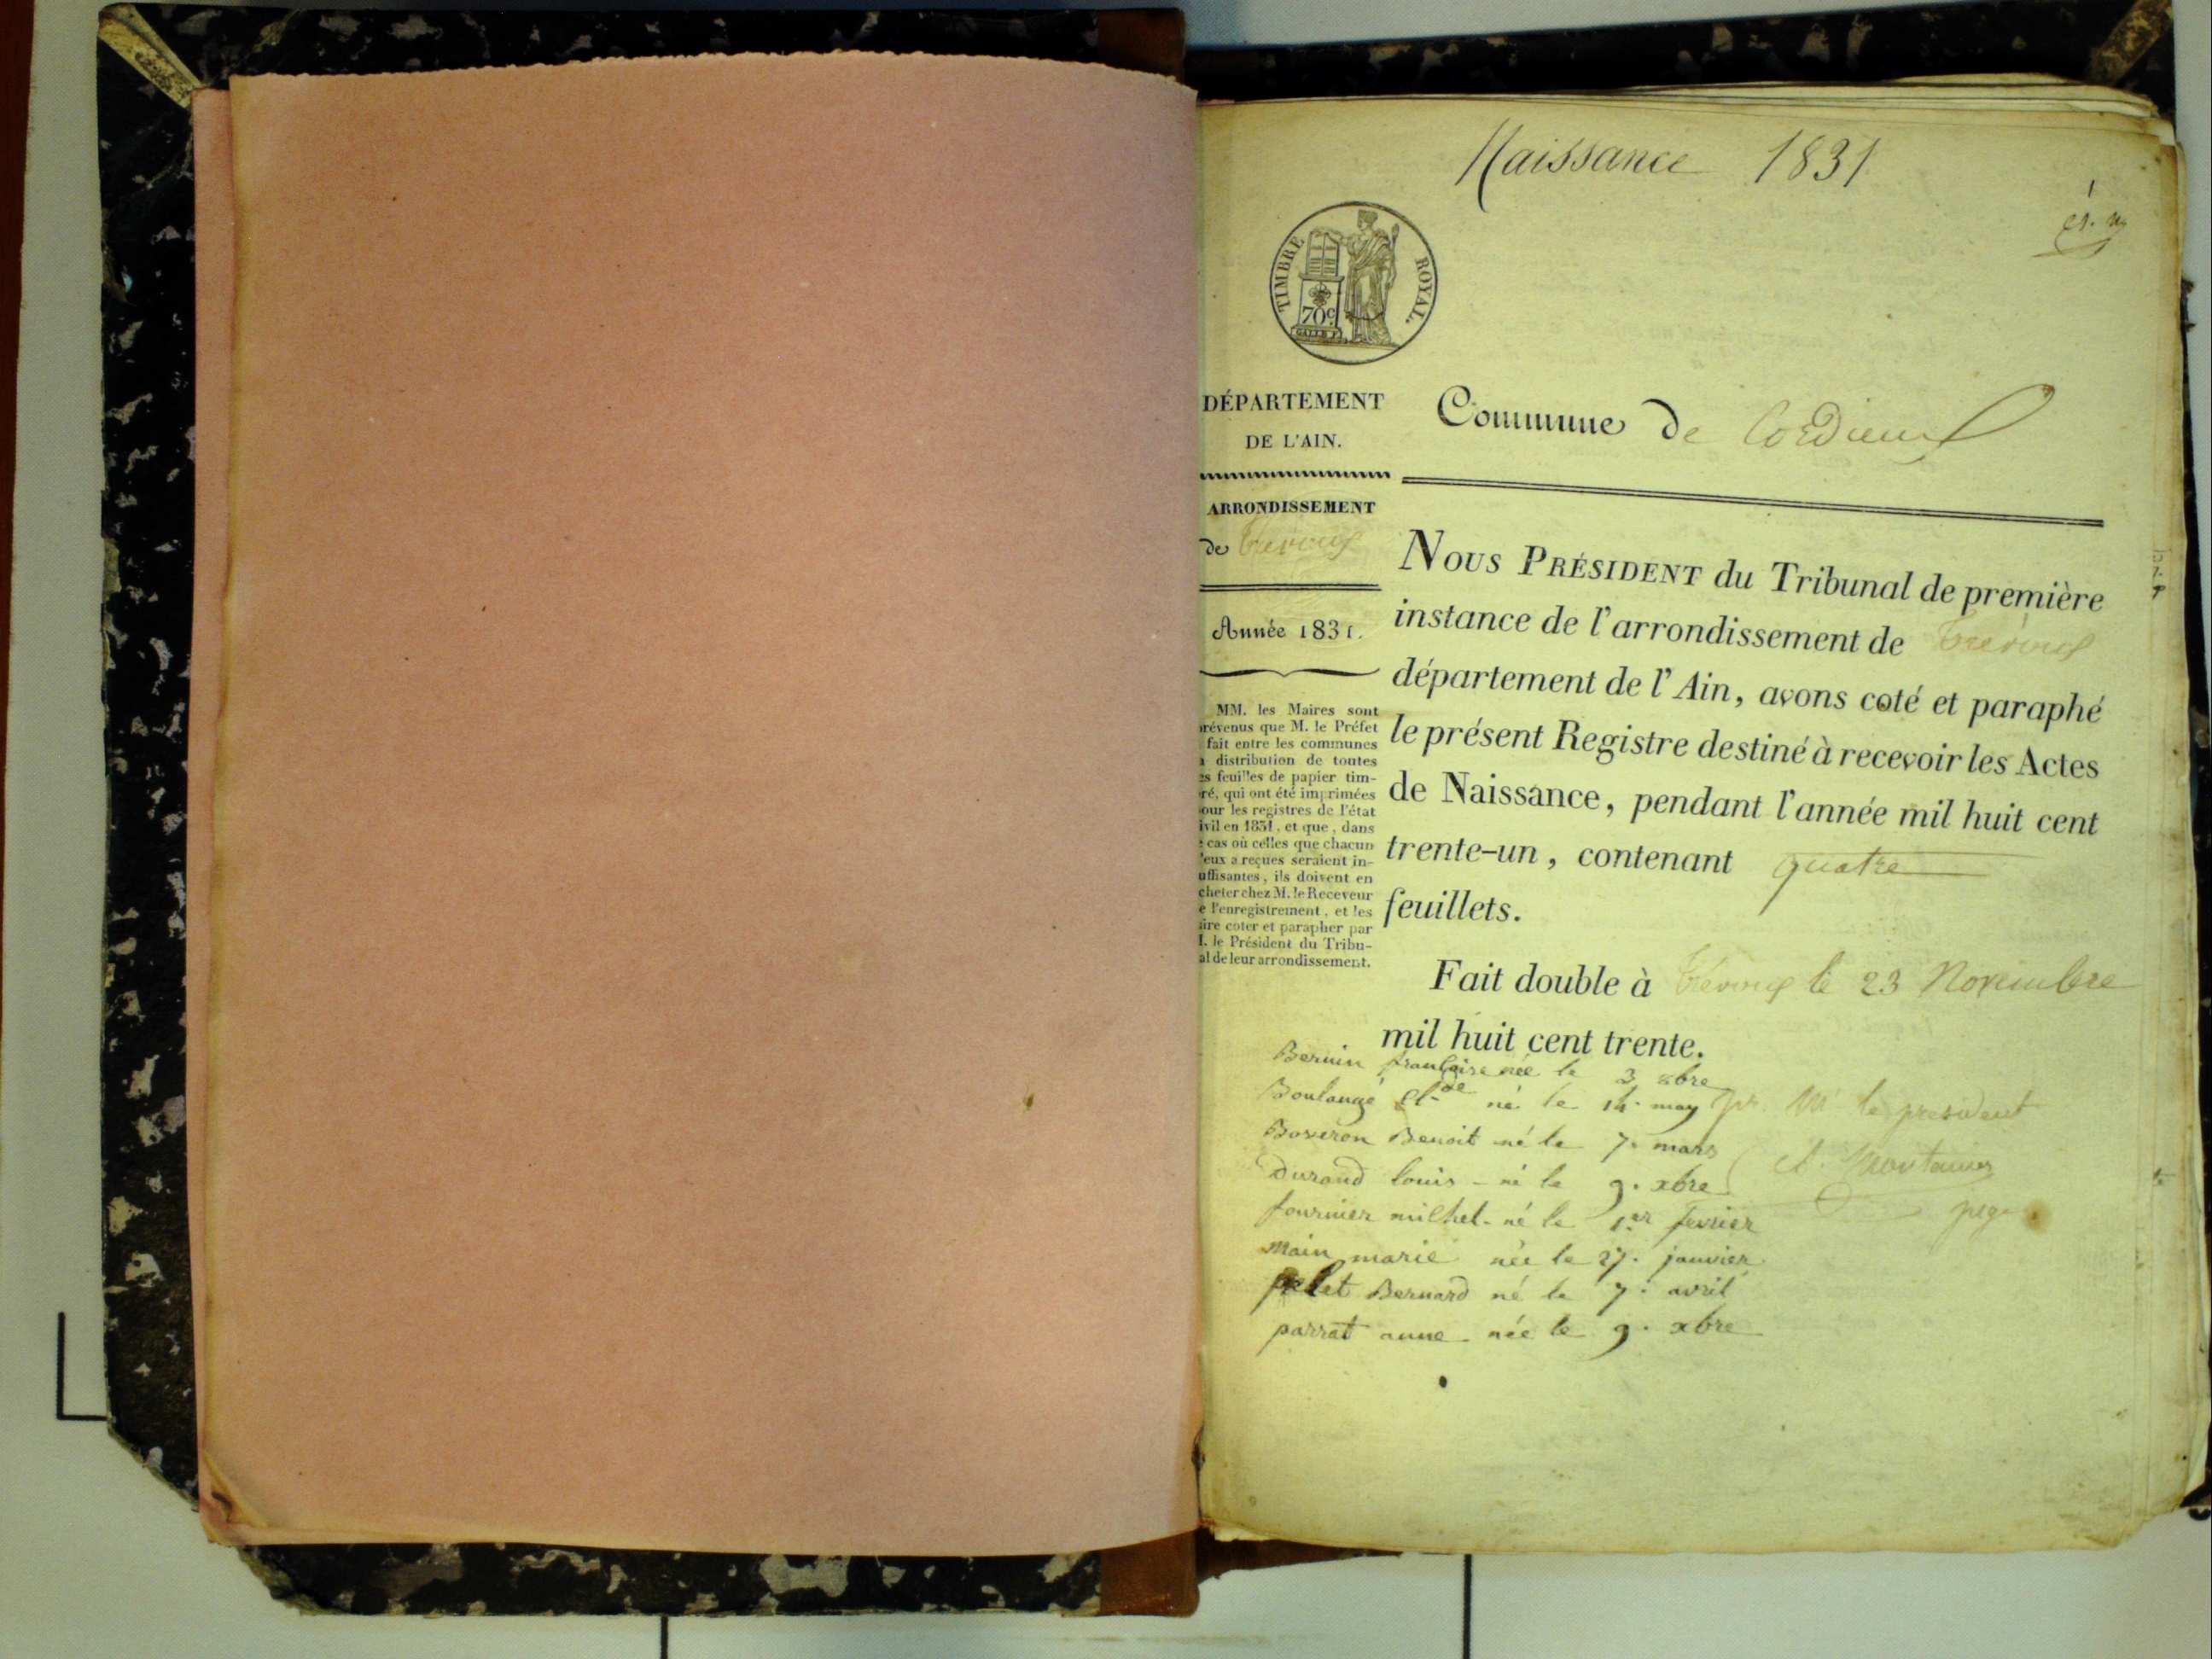 Naissance 1831
TIMBRE ROYAL.
70c
DÉPARTEMENT
DE L'AIN.
Commune de Cordieux
ARRONDISSEMENT
de Trévoux
Année 1831.
MM. les Maires sont
prévenus que M. le Préfet
fait entre les communes
distribution de toutes
feuilles de papier tim-
bré, qui ont été imprimées
pour les registres de l'état
civil en 1831, et que, dans
cas où celles que chacun
d'eux a reçues seraient in-
suffisantes, ils doivent en
acheter chez M. le Receveur
de l'enregistrement, et les
faire coter et parapher par
M. le Président du Tribu-
nal de leur arrondissement.
NOUS PRÉSIDENT du Tribunal de première
instance de l'arrondissement de Trévoux
département de l'Ain, avons coté et paraphé
le présent Registre destiné à recevoir les Actes
de Naissance, pendant l'année mil huit cent
trente-un, contenant quatre
feuillets.
Fait double à Trévoux le 23 Novembre
mil huit cent trente.
pr. Mr le président
juge
françoise née le 3 xbre
Boulangé Cl.de né le 14. may
Boveron Benoit né le 7. mars
Durand louis - né le 9. xbre
fournier milhel - né le 1er fevrier
Main marie née le 27. janvier
pelet Bernard né le 7. avril
parrat anne née le 9. xbre